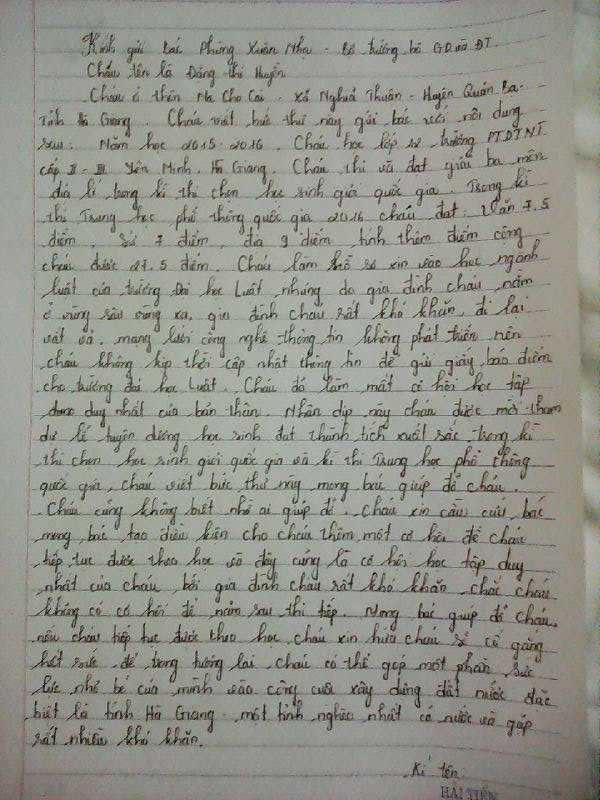 Kính gửi Bác Phùng Xuân Nhạ - Bộ trưởng bộ GD và ĐT.
Cháu tên là Đặng thị Huyền
Cháu ở thôn Na Cho Cai - Xã Nghĩa Thuận - Huyện Quản Bạ -
Tỉnh Hà Giang. Cháu viết bức thư này gửi bác với nội dung
sau: Năm học 2015-2016. Cháu học lớp 12 trường PTDTNT
cấp II-III Yên Minh, Hà Giang. Cháu thi và đạt giải ba môn
địa lí trong kì thi chọn học sinh giỏi quốc gia. Trong kì
thi Trung học phổ thông quốc gia 2016 cháu đạt: Văn 7.5
điểm, Sử 7 điểm, địa 9 điểm tính thêm điểm cộng
cháu được 27.5 điểm. Cháu làm hồ sơ xin vào học ngành
luật của trường Đại học Luật, nhưng do gia đình cháu nằm
ở vùng sâu vùng xa, gia đình cháu rất khó khăn, đi lại
vất vả, mạng lưới công nghệ thông tin không phát triển nên
cháu không kịp thời cập nhật thông tin để gửi giấy báo điểm
cho trường đại học Luật. Cháu đã làm mất cơ hội học tập
được duy nhất của bản thân. Nhân dịp này cháu được mời tham
dự lễ tuyên dương học sinh đạt thành tích xuất sắc trong kì
thi chọn học sinh giỏi quốc gia và kì thi Trung học phổ thông
quốc gia, cháu viết bức thư này mong bác giúp đỡ cháu.
Cháu cũng không biết nhờ ai giúp đỡ. Cháu xin cầu cứu bác
mong bác tạo điều kiện cho cháu thêm một cơ hội để cháu
tiếp tục được theo học vì đây cũng là cơ hội học tập duy
nhất của cháu, bởi gia đình cháu rất khó khăn, chắc cháu
không có cơ hội để năm sau thi tiếp. Mong bác giúp đỡ cháu,
nếu cháu tiếp tục được theo học, cháu xin hứa cháu sẽ cố gắng
hết sức để trong tương lai cháu có thể góp một phần sức
lực nhỏ bé của mình vào công cuộc xây dựng đất nước đặc
biệt là tỉnh Hà Giang - một tỉnh nghèo nhất cả nước và gặp
rất nhiều khó khăn.
Kí tên
HẢI TIẾN